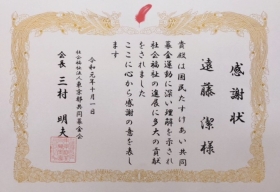 感謝状
遠藤潔様
貴殿は国民たすけあい共同
募金運動に深い理解を示され
社会福祉の進展に多大の貢献
をされました
ここに心から感謝の意を表し
ます
令和元年十月一日
社会福祉法人東京都共同募金会
会長 三村明夫